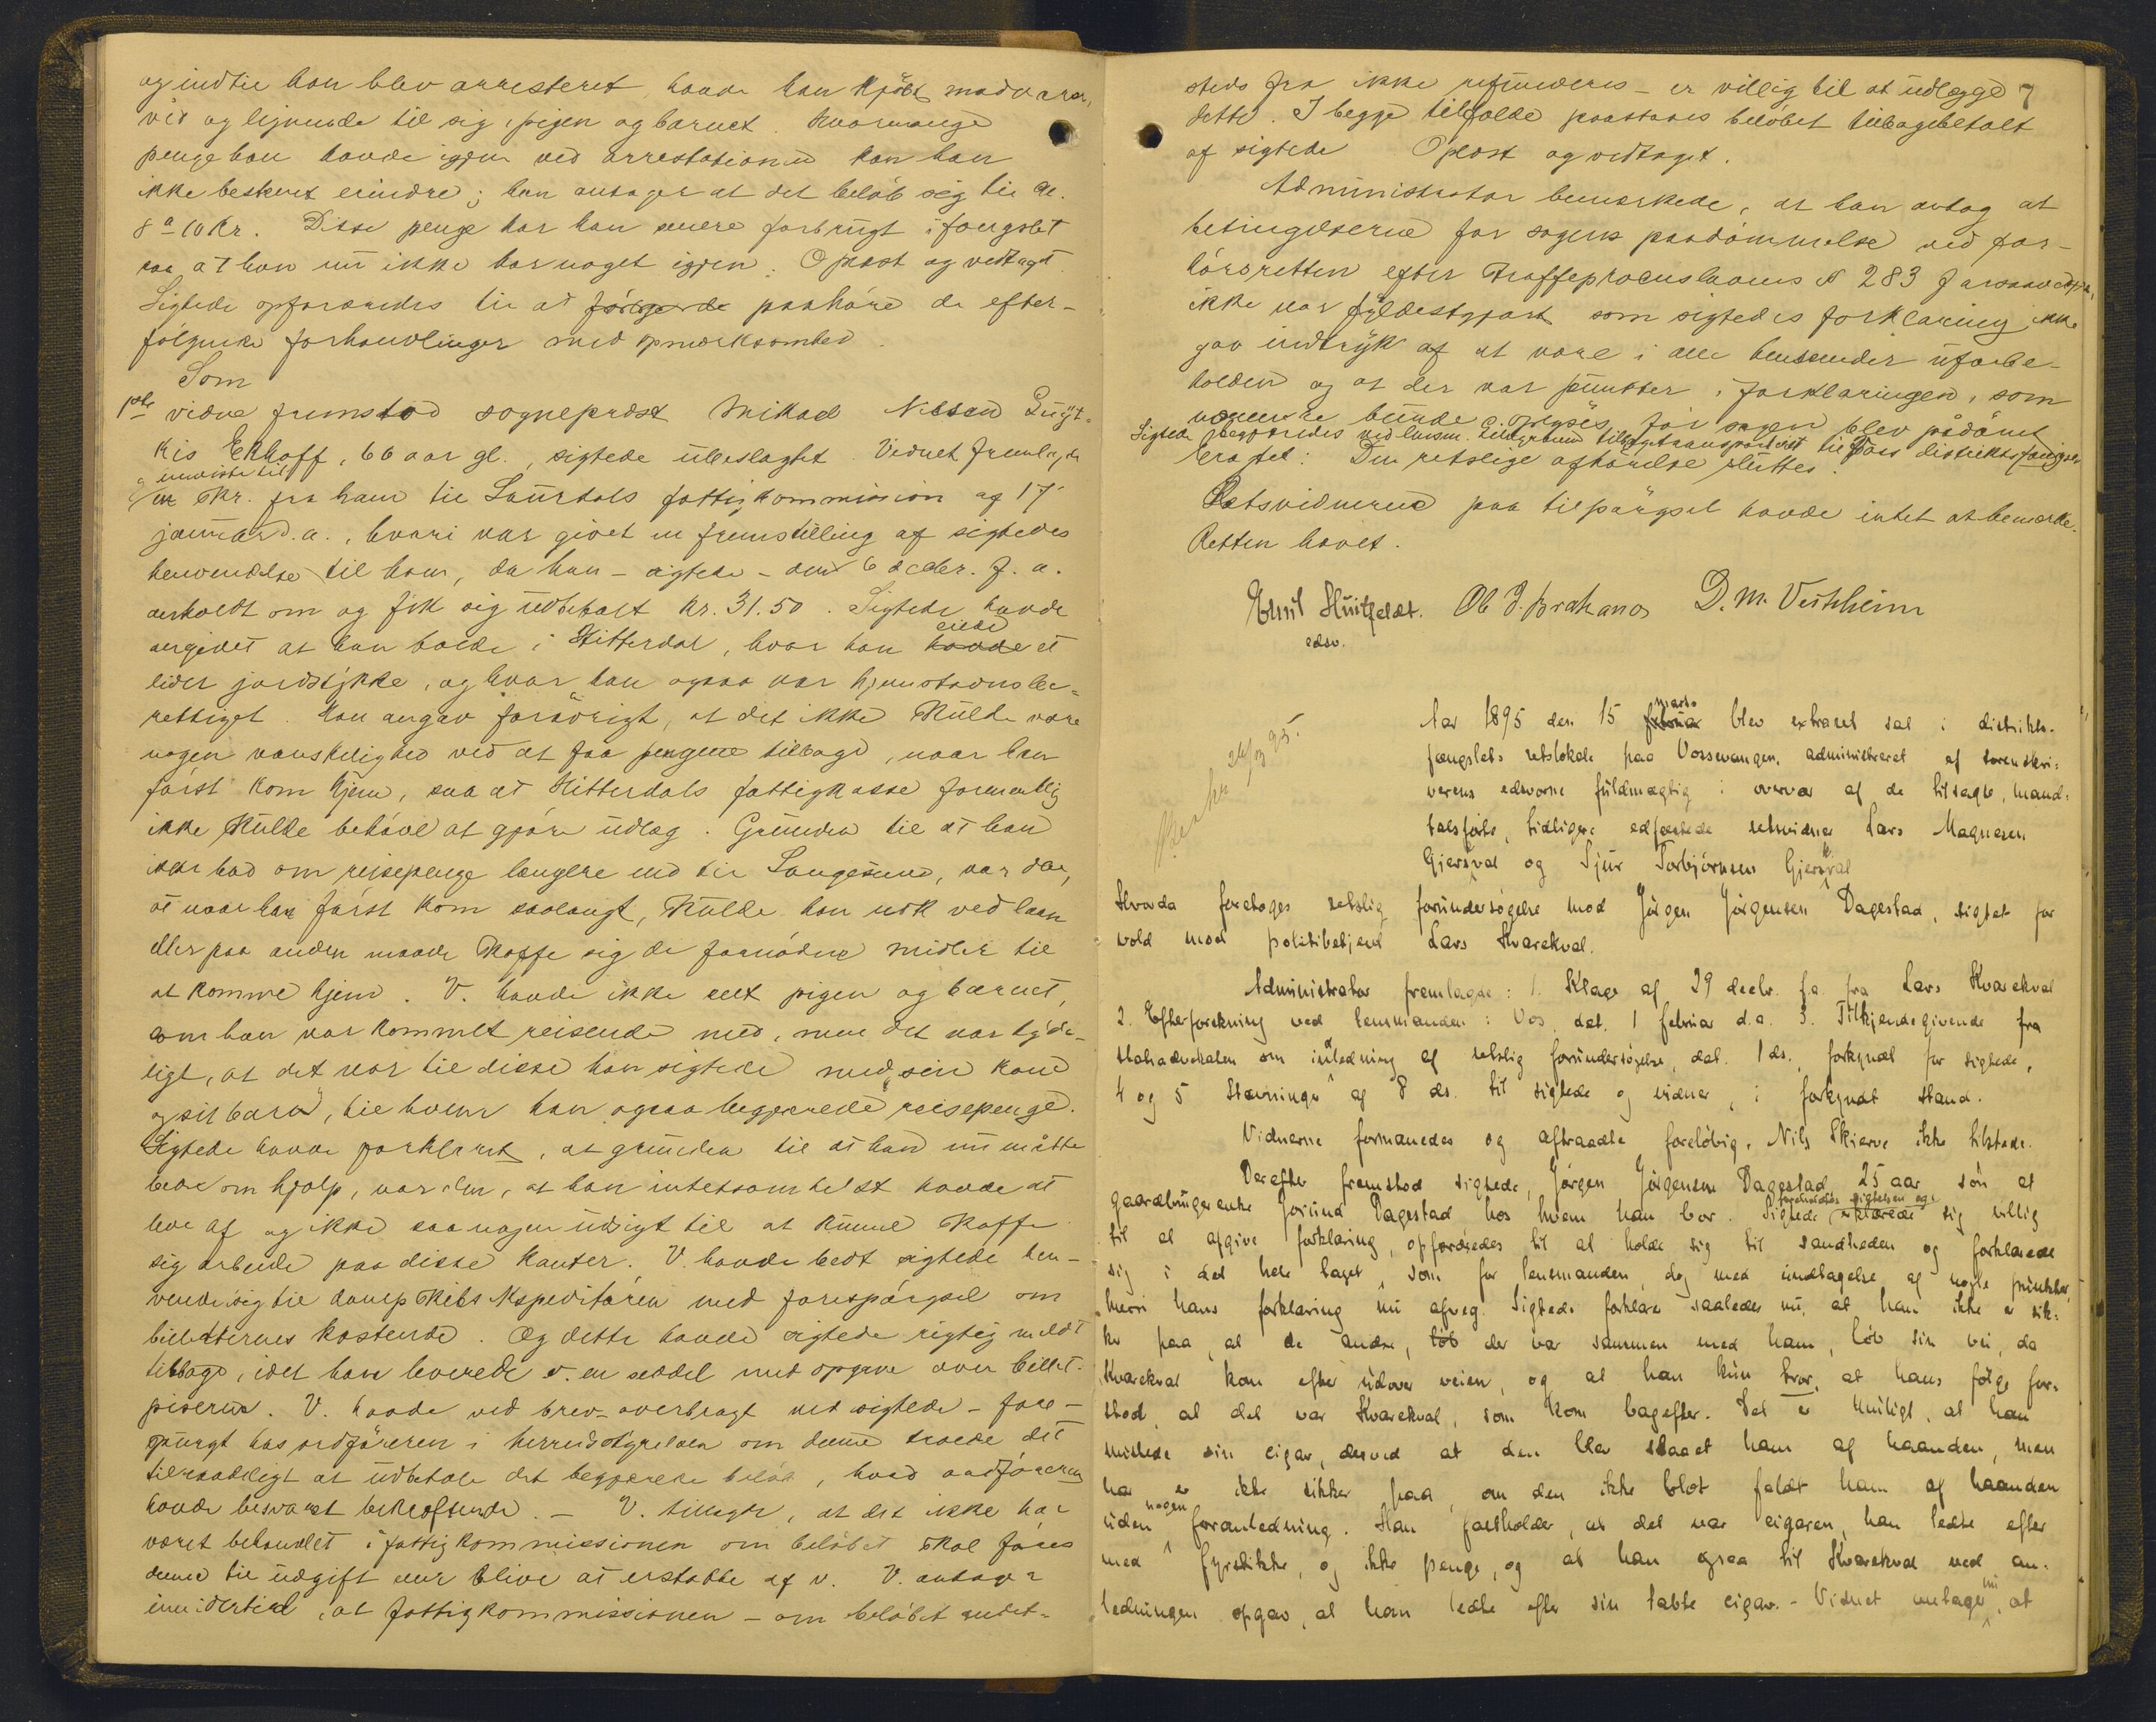 og indtil han blev arresteret, havde han kjöbt madvarer,
ved og lignende til sig, pigen og barnet. Hvormange
penge han havde igjen ved arrestationen kan han
ikke bestemt erindre; han antager at det beløb sig til ca.
8 a 10 kr. Disse penge har han senere forbrugt i fængslet
saa at han nu ikke har noget igjen. Oplæst og vedtaget.
Sigtede opfordredes til at paahöre de efter-
fölgende forhandlinger med opmærksomhed.
Som
1ste vidne fremstod sogneprest Mikael Nilssen
Ekhoff, 66 aar gl., sigtede ubeslægtet. Vidnet fremlagde
og henviste til
en skr. fra ham til Laurdals fattigkommission af 17
januar d.a., hvori var givet en fremstilling af sigtedes
henvendelse til ham, da han - sigtede - den 6 decbr. f.a.
anholdt om og fik sig udbetalt kr. 31.50. Sigtede havde
angivet at han boede i Hitterdal, hvor han havde eiede et
lidet jordstykke, og hvor han ogsaa var hjemstavnsbe-
rettiget. Han angav forövrigt, at det ikke skulde være
nogen vanskelighed ved at faa pengene tilbage, naar han
först kom hjem, saa at Hitterdals fattigkasse formentlig
ikke skulde behöve at gjöre udlæg. Grunden til at han
ikke bad om reisepenge længere end til Langesund, var den,
at naar han först kom saalangt, skulde han nok ved laan
eller paa anden maade skaffe sig de fornödne midler til
at komme hjem. V. havde ikke seet pigen og barnet,
som han var kommet reisende med, men det var tyde-
ligt, at det var til disse han sigtede med "sin kone
og sit barn", til hvem han ogsaa begjærede reisepenge.
Sigtede havde forklaret, at grunden til at han nu måtte
bede om hjælp, var den, at han intetsomhelst havde at
leve af og ikke saa nogen udsigt til at kunne skaffe
sig arbeide paa disse kanter. V. havde bedt sigtede hen-
vende sig til dampskibsexpeditören med forespörgsel om
billetternes kostende. Og dette havde sigtede rigtig meldt
tilbage, idet han leverede v. en seddel med opgave over billet-
priserne. V. havde ved brev - overbragt ved sigtede - fore-
spurgt hos ordföreren i herredsstyrelsen om denne troede det
tilraadeligt at udbetale det begjærede belöb, hvad ordföreren
havde besvaret bekræftende. - V. tillagde, at det ikke har
været behandlet i fattigkommissionen om belöbet skal föres
denne til udgift eller blive at erstatte af v. V. antager
imidlertid, at fattigkommissionen - om belöbet andet-
steds fra ikke refunderes - er villig til at udlægge 7
dette. I begge tilfælde paastaaes belöbet tilbagebetalt
af sigtede. Oplæst og vedtaget.
Administrator bemærkede, at han antog at
betingelserne for sagens paadömmelse ved for-
hörsretten efter straffeproceslovens § 283
ikke var fyldestgjort som sigtedes forklaring ikke
gav indtryk af at være i alle henseender uforbe-
holden og at der var punkter i forklaringen, som
nærmere burde oplyses, för sagen blev pådömt
Sigtede begjæredes ved lensm. tilbagetransporteret til Voss distriktsfængsel
Den retslige afhörelse sluttes.
Retsvidnerne paa tilspörgsel havde intet at bemærke.
Retten hævet.
Emil Huitfeldt. Ol. J. Brakanes D. M. Vestrheim
edsv.
26/3 95.
Aar 1895 den 15 februar marts blev extraret sat i distrikts-
fængslets retslokale paa Vossevangen, administreret af sorenskri-
verens edsvorne fuldmægtig i overvær af de tilsagte, mand-
talsførte, tidligere edfæstede retsvidner Lars Magnesen
Gjerskval og Sjur Torbjörnsen Gjerskval
Hvorda foretoges retslig forundersögelse mod Jörgen Jörgensen Dagestad, sigtet for
vold mod politibetjent Lars Kvarekval.
Administrator fremlagde: 1. Klage af 29 decbr. f.a. fra Lars Kvarekval
2. Efterforskning ved lensmanden i Vos, dat. 1 februar d.a. 3. Tilkjendegivende fra
statsadvokaten om indledning af retslig forundersögelse, dat. 1 ds., forkyndt for sigtede,
4 og 5 Stævninger af 8 ds. til sigtede og vidner, i forkyndt stand.
Vidnerne formanedes og aftraadte foreløbig. Nils Skjerve ikke tilstede.
Derefter fremstod sigtede, Jörgen Jörgensen Dagestad, 25 aar, sön af
gaardbrugerenke Jorund Dagestad hos hvem han bor. Sigtede foreholdtes sigtelsen og erklærede sig villig
til at afgive forklaring, opfordredes til at holde sig til sandheden og forklarede
sig i det hele taget, som for lensmanden, dog med undtagelse af nogle punkter,
hvori hans forklaring nu afveg. Sigtede forklarer saaledes nu, at han ikke er sik-
ker paa, at de andre, löb der var sammen med ham, löb sin vei, da
Kvarekval kom efter udover veien, og at han kun tror, at hans fölge for-
stod, at det var Kvarekval, som kom bagefter. Det er muligt, at han
mistede sin cigar, derved at den blev slaaet ham af haanden, men
han er ikke sikker paa, om den ikke blot faldt ham af haanden
uden nogen foranledning. Han fastholder, at det var cigaren, han ledte efter
med fyrstikke, og ikke penge, og at han ogsaa til Kvarekval ved an-
ledningen opgav, at han ledte efter sin tabte cigar. - Vidnet antager nu, at